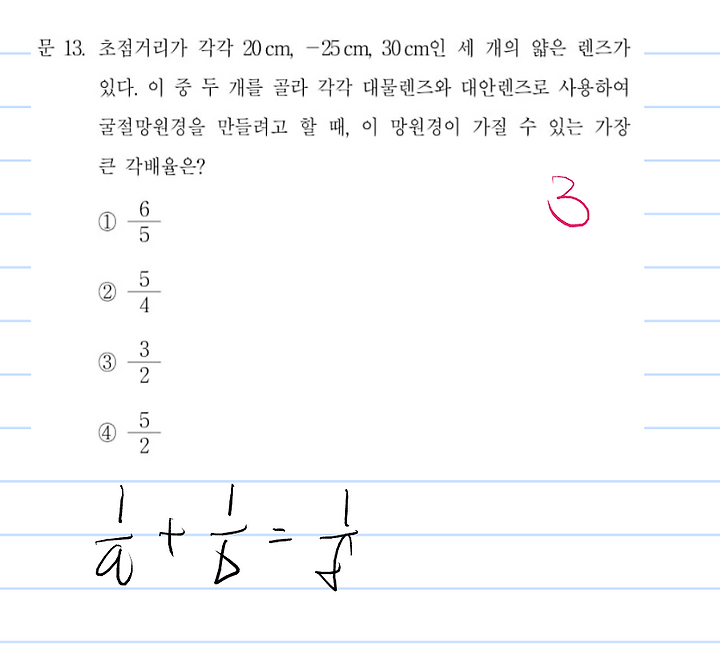 문 13. 초점거리가 각각 20 cm, -25 cm, 30 cm인 세 개의 얇은 렌즈가
있다. 이 중 두 개를 골라 각각 대물렌즈와 대안렌즈로 사용하여
굴절망원경을 만들려고 할 때, 이 망원경이 가질 수 있는 가장
큰 각배율은?
3
① 6/5
② 5/4
③ 3/2
④ 5/2
1/a + 1/b = 1/f